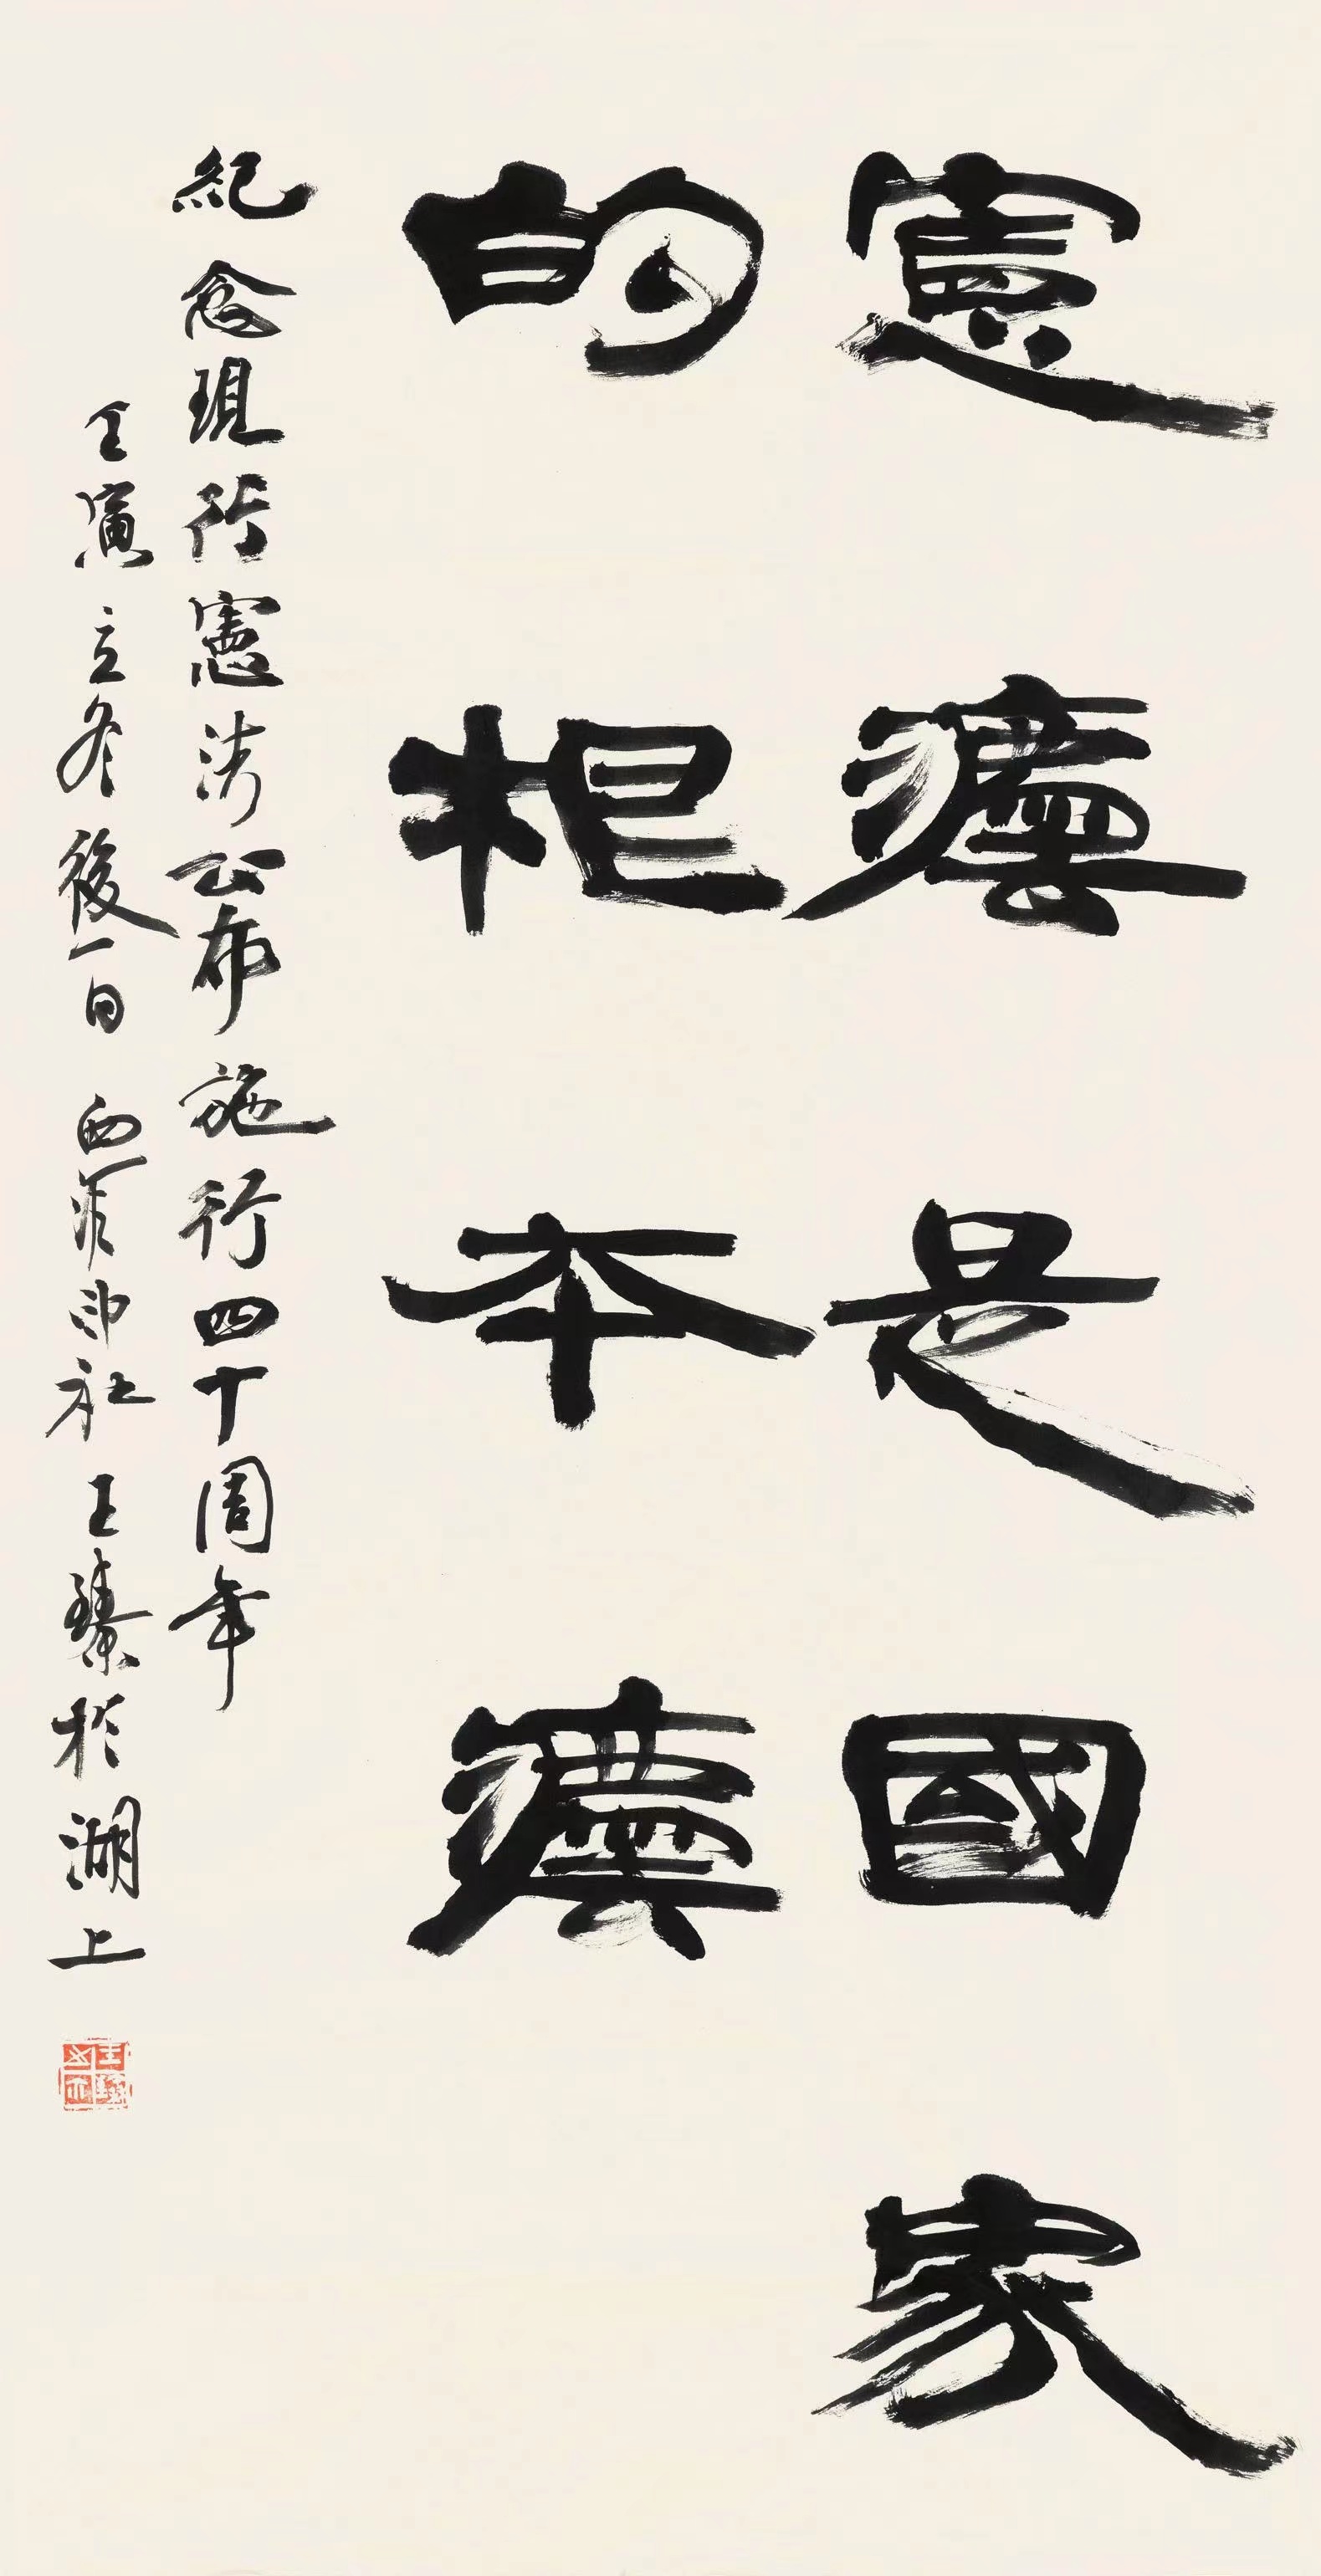 憲灋是國家
的根本灋
紀念現行憲法公布施行四十周年
壬寅立冬後一日西泠印社王臻於湖上